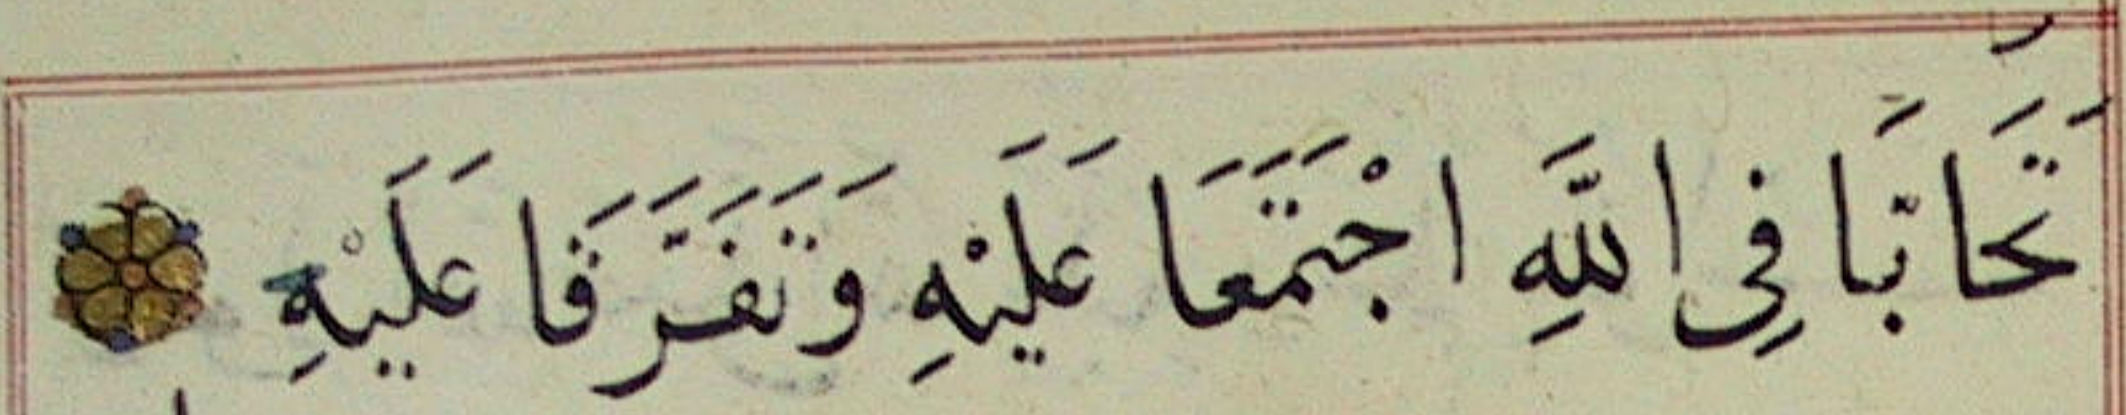 تَحَابَّا فِي اللَّهِ اجْتَمَعَا عَلَيْهِ وَتَفَرَّقَا عَلَيْهِ